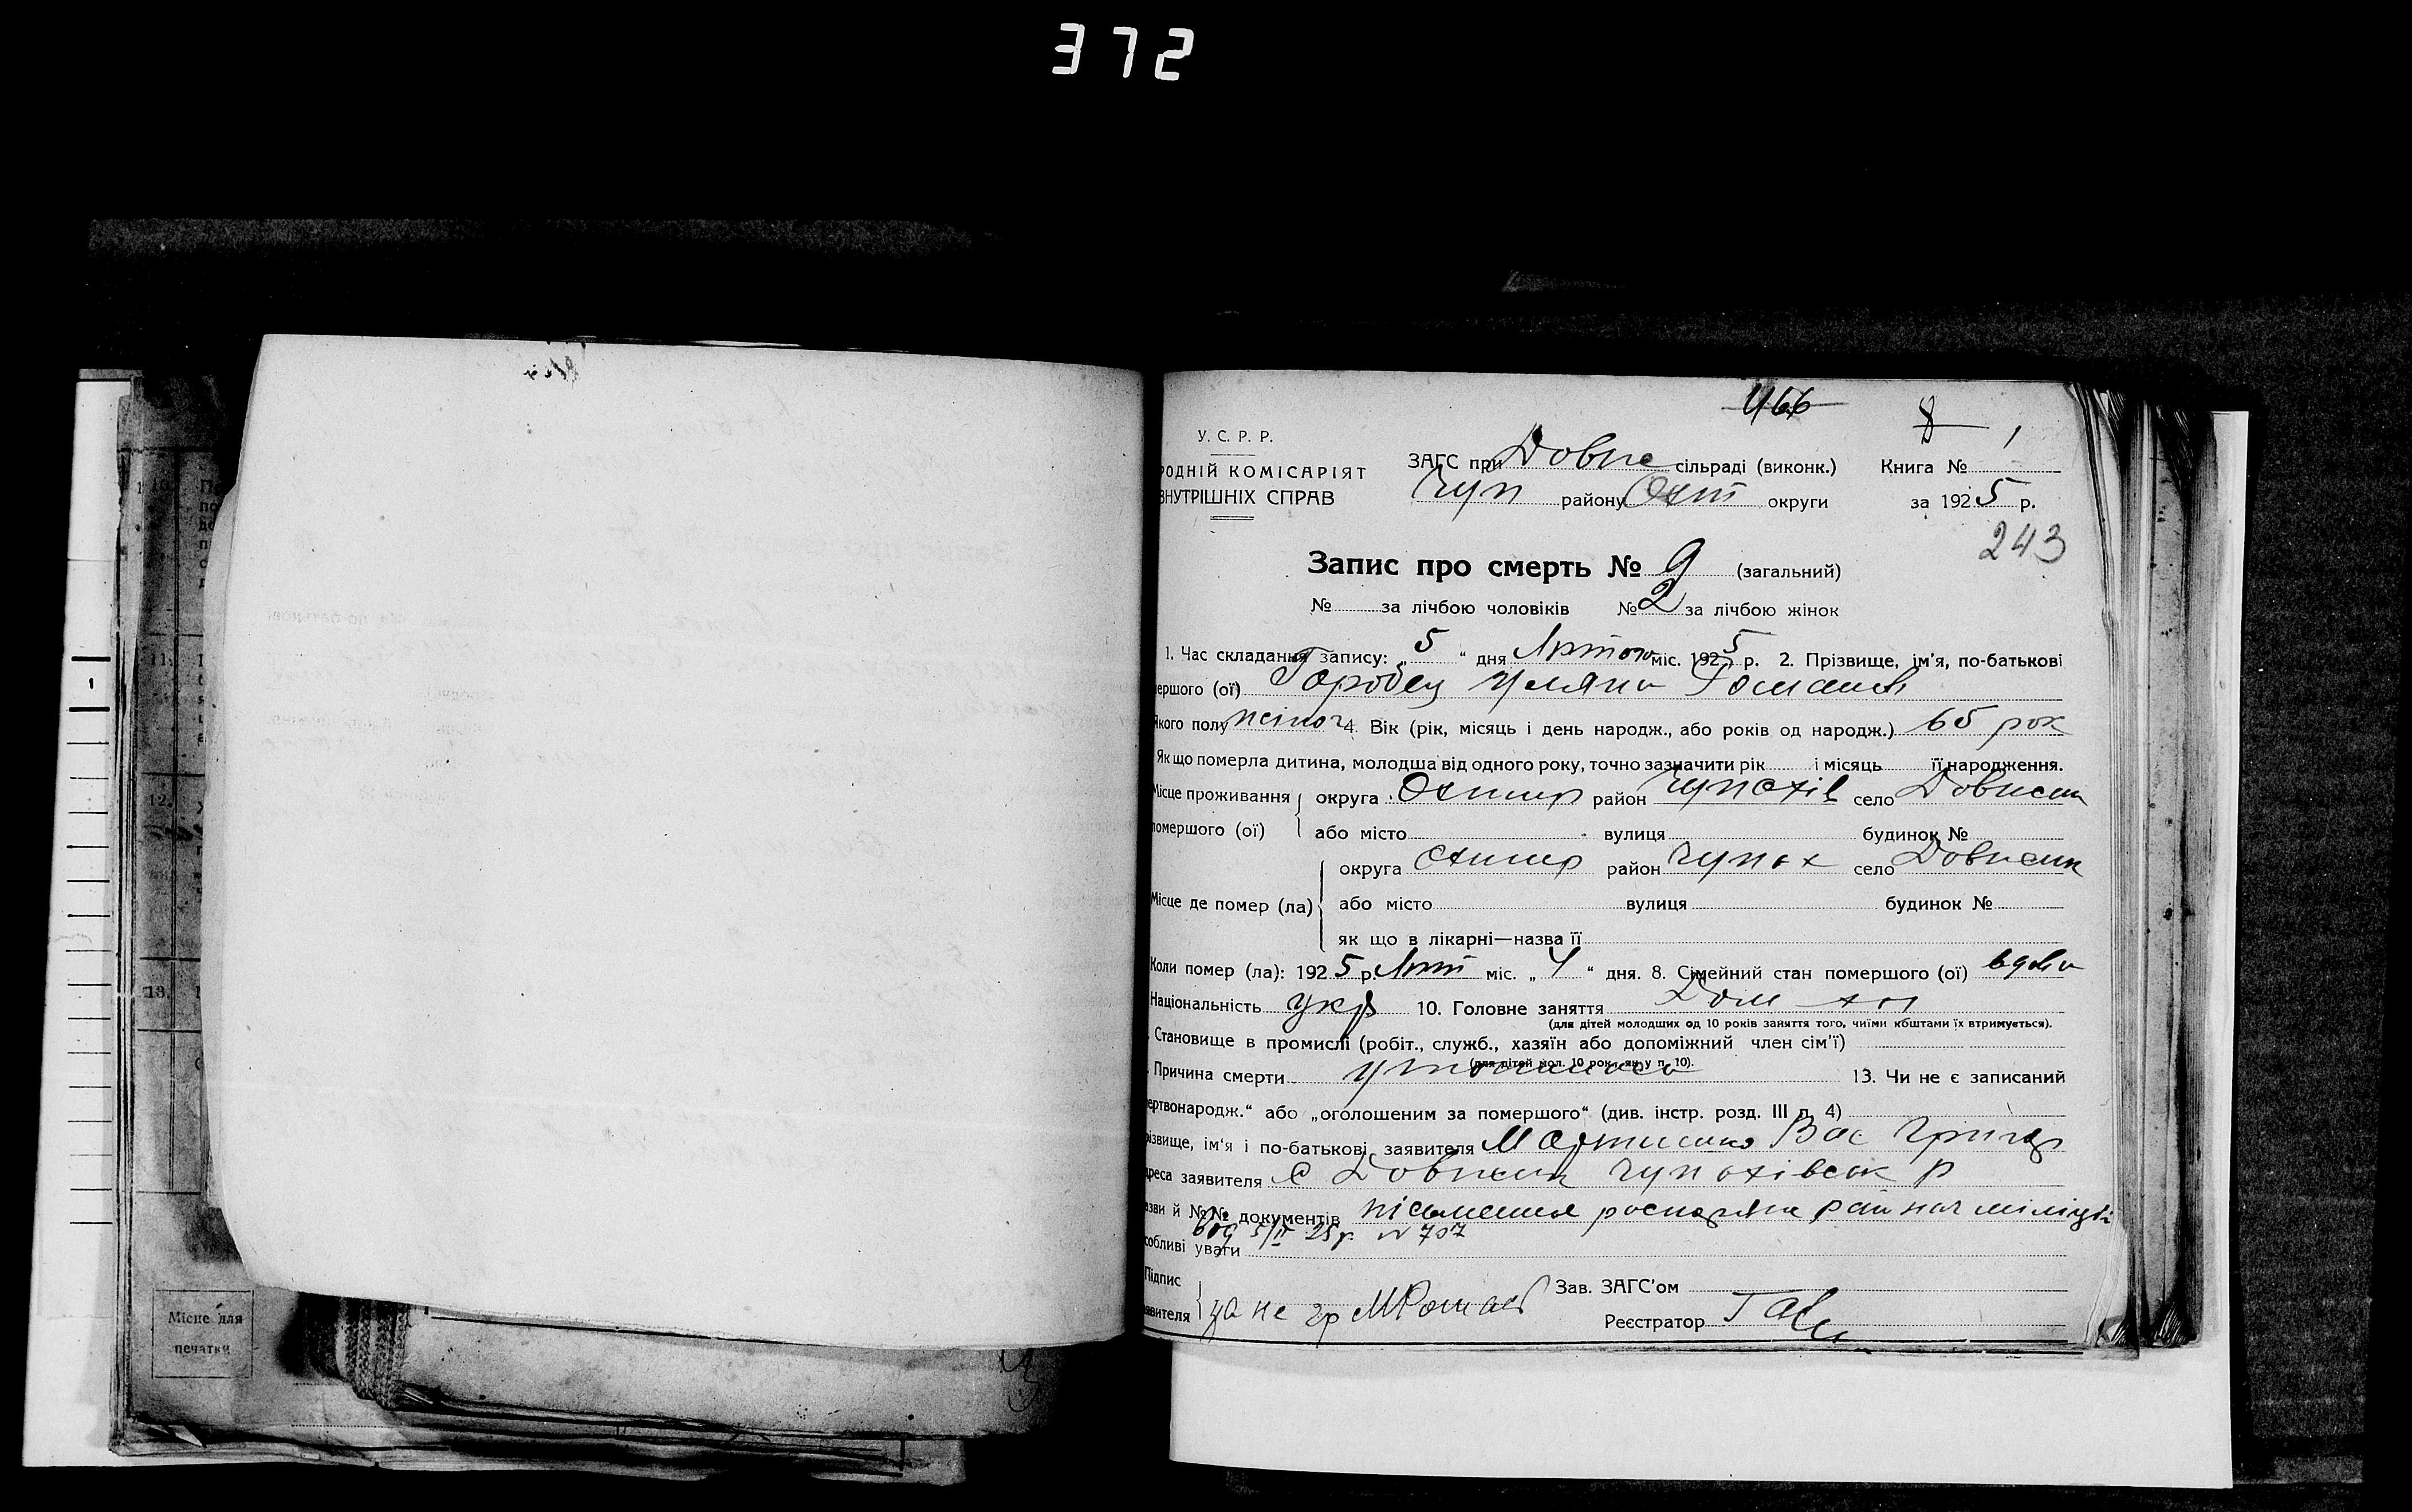 372
466
8 1
У. С. Р. Р.
РОДНІЙ КОМІСАРІЯТ
ВНУТРІШНІХ СПРАВ
ЗАГС при Довже сільраді (виконк.) Книга №
Чуп району Охт округи за 1925 р.
243
Запис про смерть № 9 (загальний)
№ за лічбою чоловіків № 2 за лічбою жінок
1. Час складання запису: „ 5 “ дня Лютого міс. 1925 р. 2. Прізвище, ім'я, по-батькові
мершого (ої) Горобец Уляна Романов
Якого полу жіноч 4. Вік (рік, місяць і день народж., або років од народж.) 65 рок
Як що померла дитина, молодша від одного року, точно зазначити рік і місяць її народження.
Місце проживання округа Охтир район Чупахів село Довжик
помершого (ої) або місто вулиця будинок №
округа Охтир район Чупах село Довжик
Місце де помер (ла) або місто вулиця будинок №
як що в лікарні—назва її
Коли помер (ла): 1925 р. Лют міс. „ 4 “ дня. 8. Сімейний стан помершого (ої) вдова
Національність укр 10. Головне заняття Дом
(для дітей молодших од 10 років заняття того, чиїми коштами їх втримується).
Становище в промислі (робіт., служб., хазяїн або допоміжний член сім'ї)
(для дітей мол. 10 рок., як у п. 10).
Причина смерти 13. Чи не є записаний
ертвонародж.“ або „оголошеним за помершого“ (див. інстр. розд. III п. 4)
різвище, ім'я і по-батькові заявителя Вас Григор
дреса заявителя С Довжик Чупахівськ р
азви й №№ документів рай нач міліціі
від 5/II 25 р. № 707
собливі уваги
Підпис Зав. ЗАГС'ом
явителя за не гр Реєстратор
Місце для
печатки
11.
12.
13.